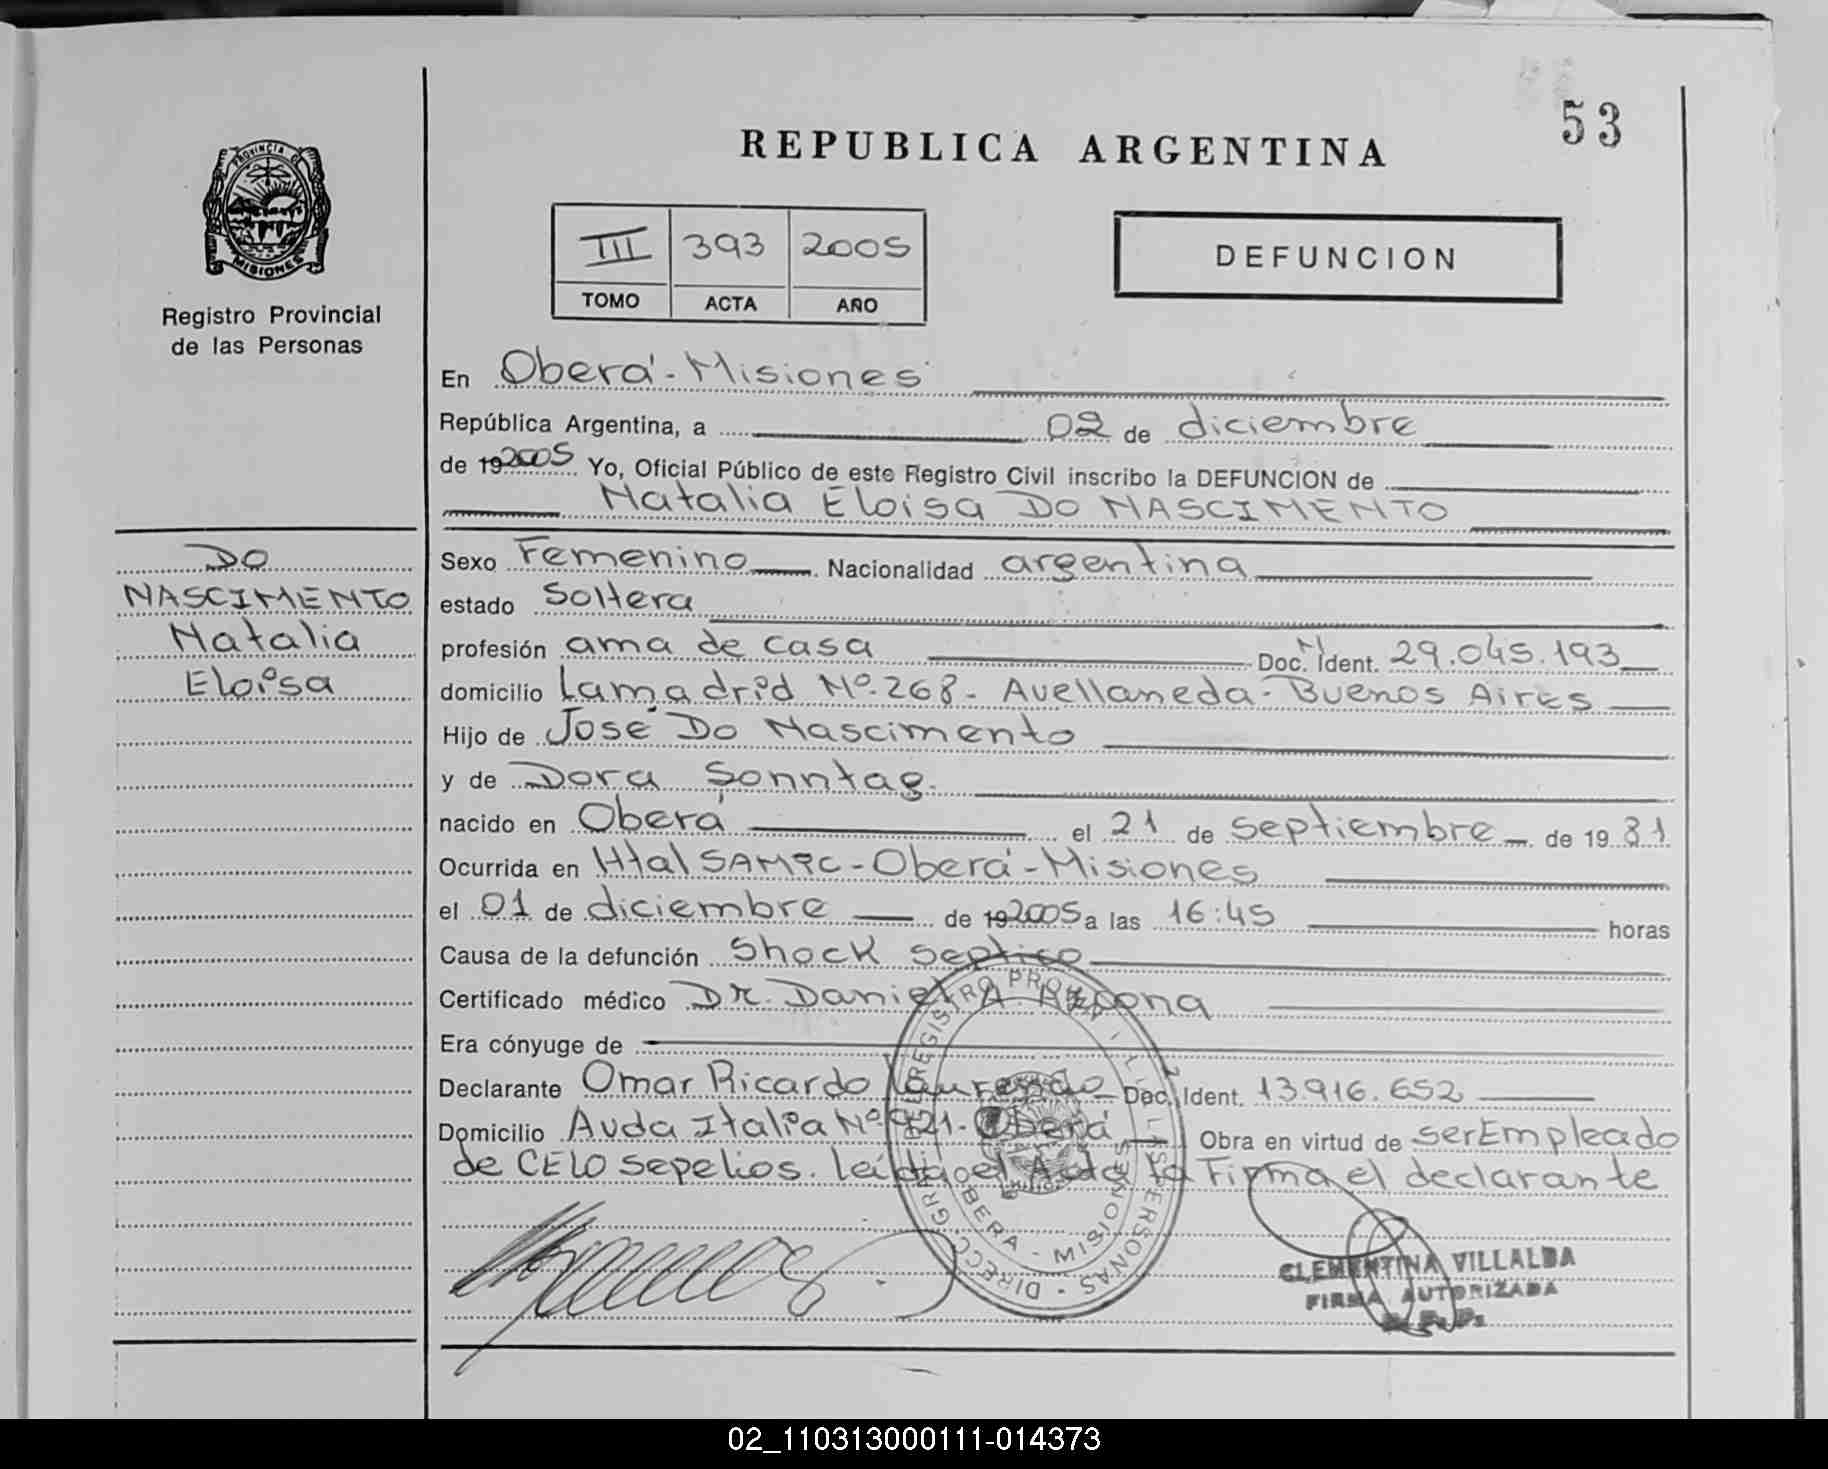 53
REPUBLICA ARGENTINA
PROVINCIA DE
MISIONES
Registro Provincial
de las Personas
III 393 2005
TOMO ACTA AÑO
DEFUNCION
En Oberá - Misiones
República Argentina, a 02 de diciembre
de 19 2005 Yo, Oficial Público de este Registro Civil inscribo la DEFUNCION de
Natalia Eloisa DO NASCIMENTO
DO
NASCIMENTO
Natalia
Eloisa
Sexo Femenino Nacionalidad argentina
estado Soltera
profesión ama de casa Doc. N° Ident. 29.045.193
domicilio Lamadrid Nº 268 - Avellaneda - Buenos Aires
Hijo de José Do Nascimento
y de Dora Sonntag.
nacido en Oberá el 21 de septiembre de 19 81
Ocurrida en Htal SAMIC - Oberá - Misiones
el 01 de diciembre de 19 2005 a las 16:45 horas
Causa de la defunción Shock septico
Certificado médico Dr. Daniel A. Azcona
Era cónyuge de
Declarante Omar Ricardo Laurencio Doc. Ident. 13.916.652
Domicilio Avda Italia Nº 921 - Oberá Obra en virtud de ser Empleado
de CELO sepelios. leída el Acta la Firma el declarante
OBERA - MISIONES
CLEMENTINA VILLALBA
FIRMA AUTORIZADA
R. P. P.
02_110313000111-014373